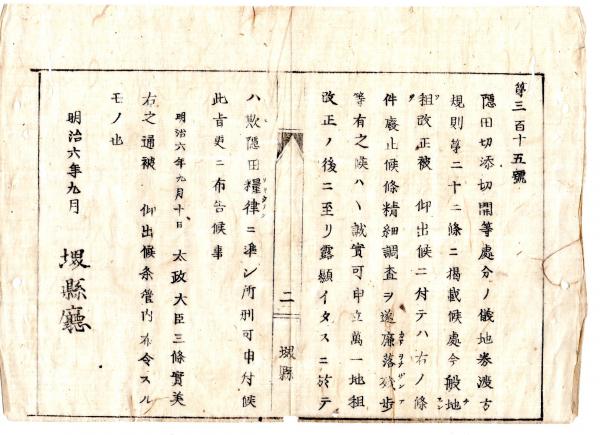 第三百十五號
隠田切添切開等處分ノ儀地券渡方
規則第二十二條ニ掲載候處今般地
租改正被 仰出候ニ付テハ右ノ條
件廢止候條精細調査ヲ遂廉落殘歩
等有之候ハヽ誠實可申立萬一地租
改正ノ後ニ至リ露顯イタスニ於テ
二
堺縣
ハ欺隠田糧律ニ準シ所刑可申付候
此旨更ニ布告候事
明治六年九月十日 太政大臣三條實美
右之通被 仰出候条管内布令スル
モノ也
明治六年九月 堺縣廳